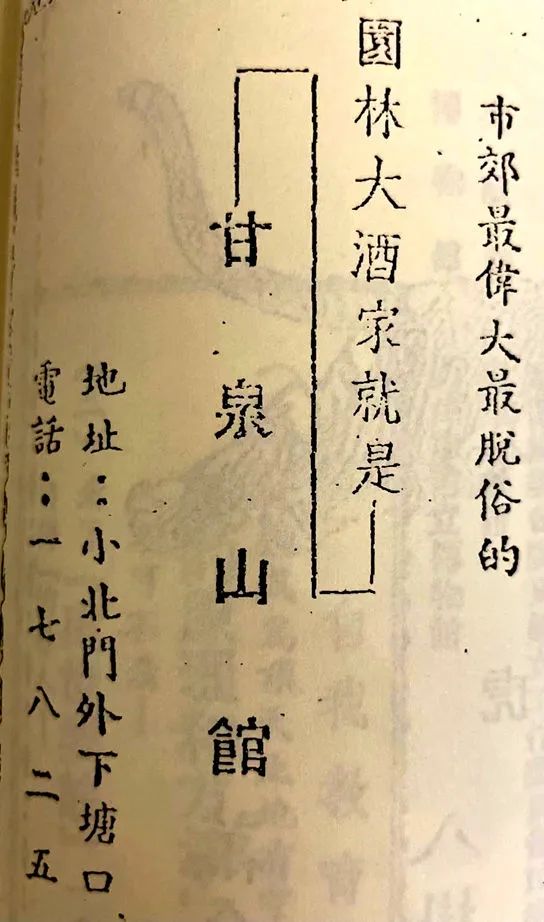 市郊最偉大最脫俗的
園林大酒家就是
甘泉山館
地址：小北門外下塘口
電話：一七八二五